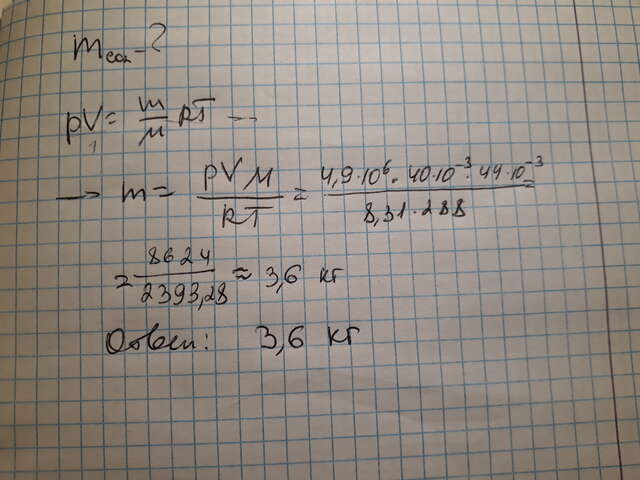 m газ - ?
pV = m/M RT --
→ m = pVM/RT = 4,9·10⁶ · 40·10⁻³ · 44·10⁻³/8,31·288 =
= 8624/2393,28 ≈ 3,6 кг
Ответ: 3,6 кг